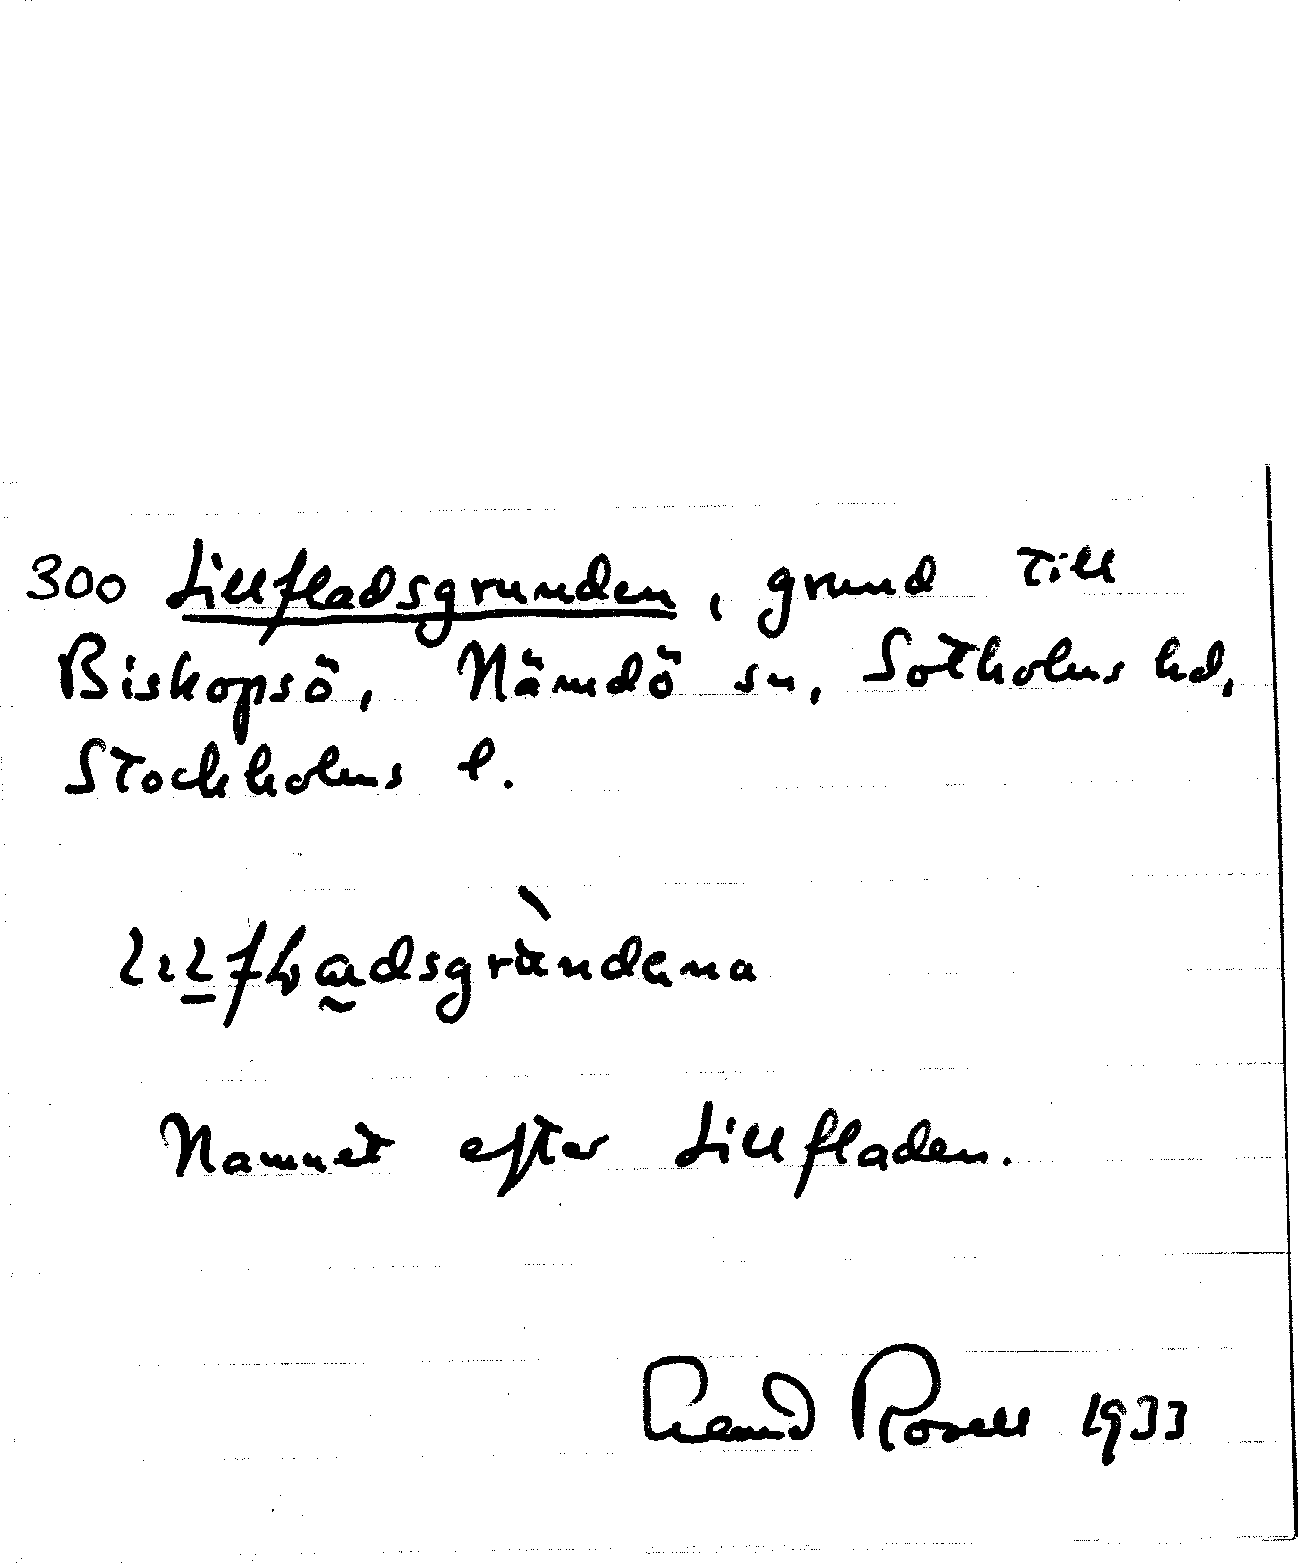 300 Lillfladsgrunden, grund till
Biskopsö, Nämdö sn, Sotholms hd,
Stockholms l.
Namnet efter Lillfladen.
Rosell 1933